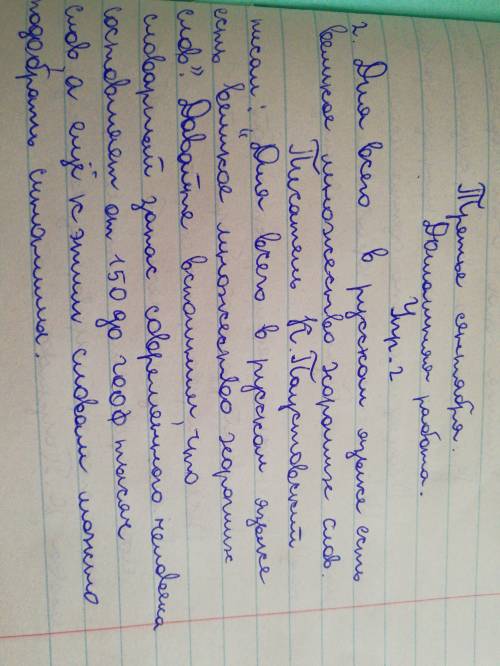 Третье сентября.
Домашняя работа.
Упр. 2
2. Для всего в русском языке есть
великое множество хороших слов.
Писатель К. Паустовский
писал: "Для всего в русском языке
есть великое множество хороших
слов". Давайте вспомним, что
словарный запас современного человека
составляет от 150 до 2000 тысяч
слов а ещё к этим словам можно
подобрать синонимы.